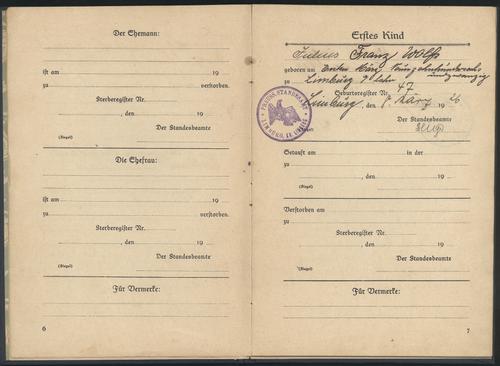 Der Ehemann:
ist am 19
zu verstorben.
Sterberegister Nr.
, den 19
Der Standesbeamte
(Siegel)
Die Ehefrau:
ist am 19
zu verstorben.
Sterberegister Nr.
, den 19
Der Standesbeamte
(Siegel)
Für Vermerke:
6
Erstes Kind
Julius Franz Wolff
geboren am Ersten März
zu Limburg a. Lahn
Geburtsregister Nr. 47
Limburg, den 8. März 1926
Der Standesbeamte
(Siegel)
PREUSS. STANDESAMT
Getauft am in der
zu
, den 19
(Siegel)
Verstorben am
zu
Sterberegister Nr.
, den 19
Der Standesbeamte
(Siegel)
Für Vermerke:
7